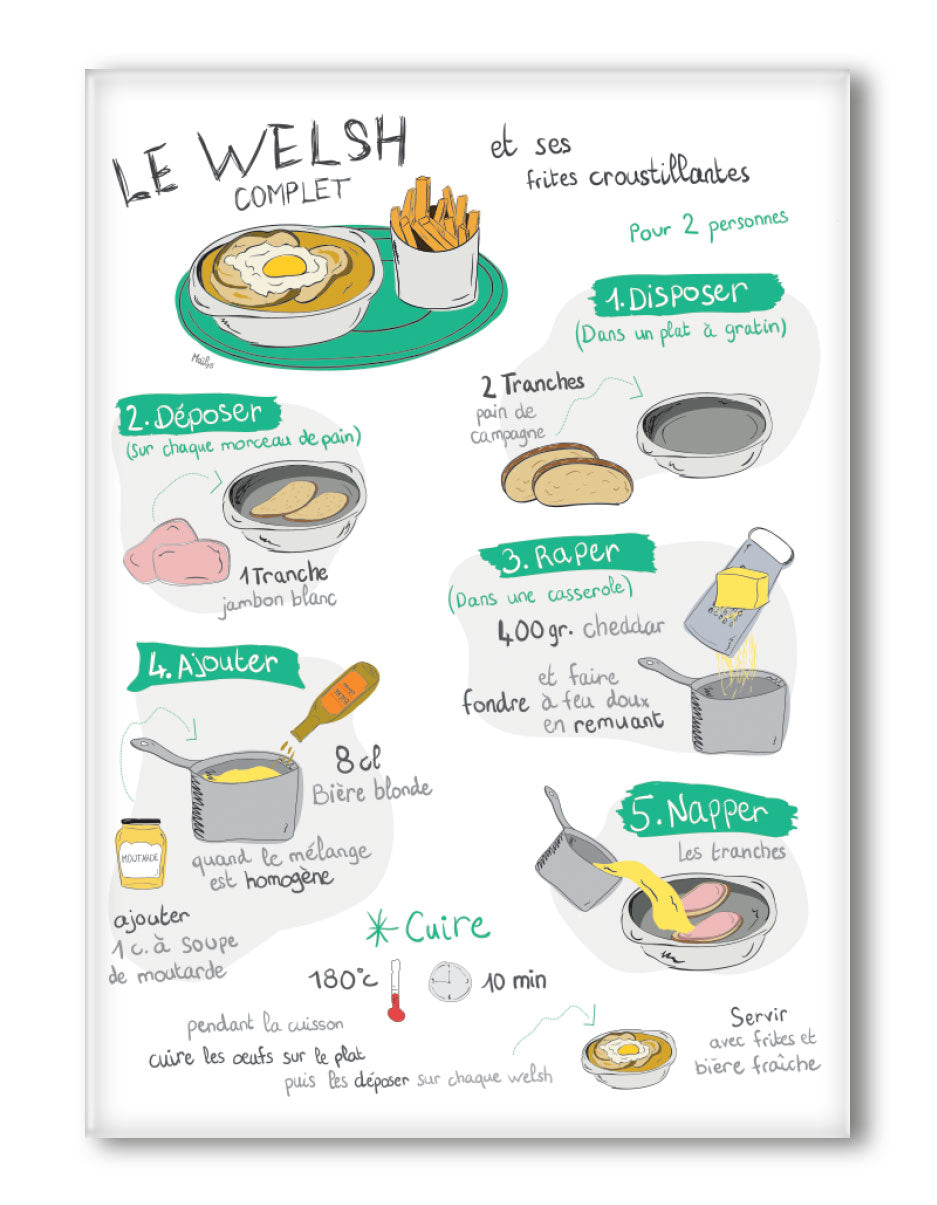 LE WELSH
COMPLET
et ses
frites croustillantes
Pour 2 personnes
1. Disposer
(Dans un plat à gratin)
2 Tranches
pain de
campagne
2. Déposer
(sur chaque morceau de pain)
1 Tranche
jambon blanc
3. Raper
(Dans une casserole)
400 gr. cheddar
et faire
fondre à feu doux
en remuant
4. Ajouter
8 cl
Bière blonde
MOUTARDE
quand le mélange
est homogène
ajouter
1 c. à soupe
de moutarde
5. Napper
Les tranches
Cuire
180°c
10 min
pendant la cuisson
cuire les œufs sur le plat
puis les déposer sur chaque welsh
Servir
avec frites et
bière fraîche